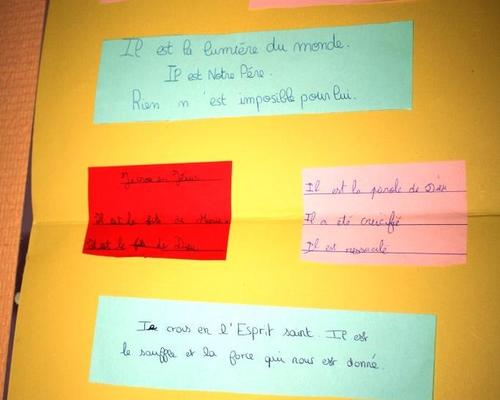 Il est la lumière du monde.
Il est Notre Père.
Rien n'est imposible pour lui.
Je crois en Jésus
Il est le fils de Marie.
Il est le fils de Dieu
Il est la parole de Dieu
Il a été crucifié
Il est ressucité
Je crois en l'Esprit saint. Il est
le souffle et la force qui nous est donné.